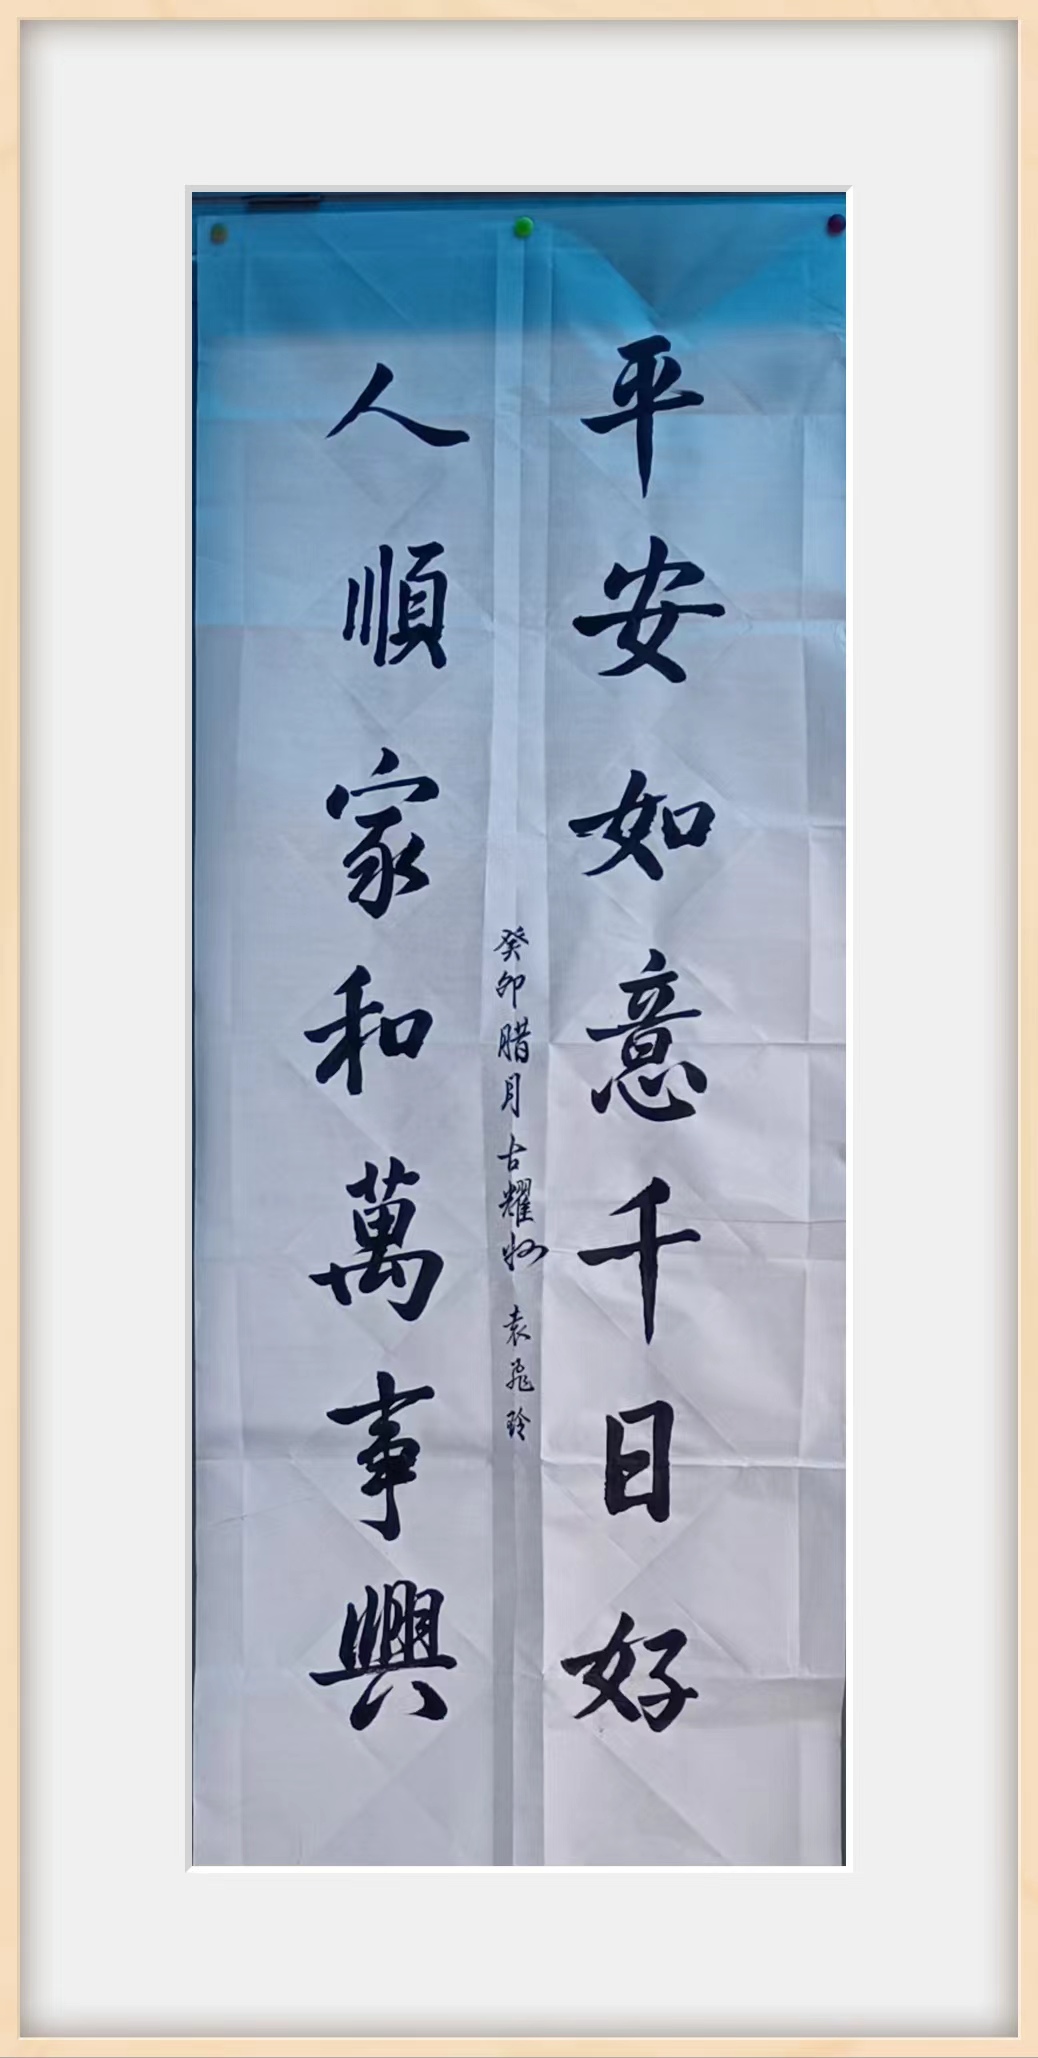 平安如意千日好
人順家和萬事興
癸卯腊月古耀州 袁飛玲